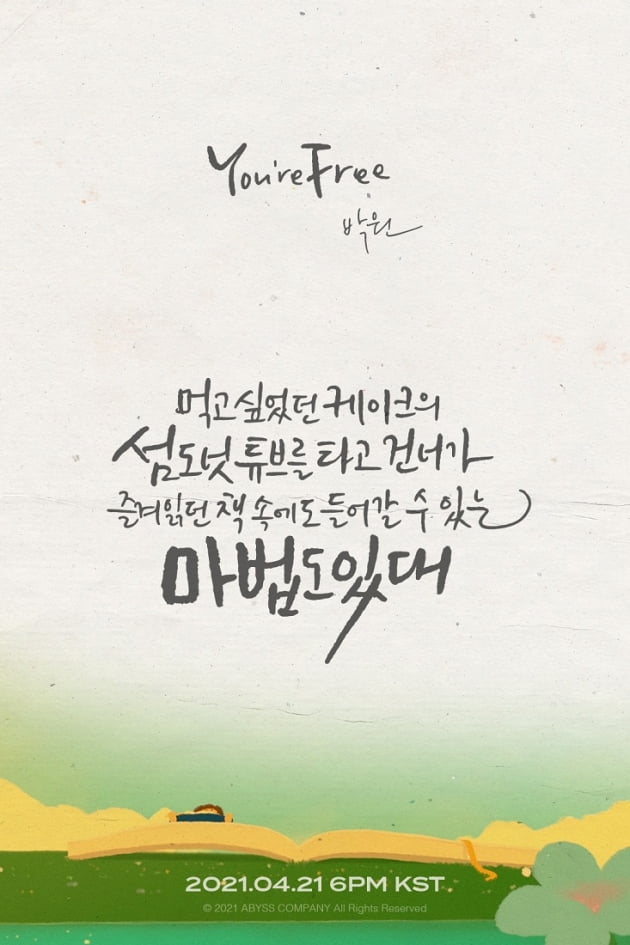 You're Free
박원
먹고싶었던 케이크의
섬 도넛 튜브를 타고 건너가
즐겨읽던 책 속에도 들어갈 수 있는
마법도 있대
2021.04.21 6PM KST
© 2021 ABYSS COMPANY All Rights Reserved